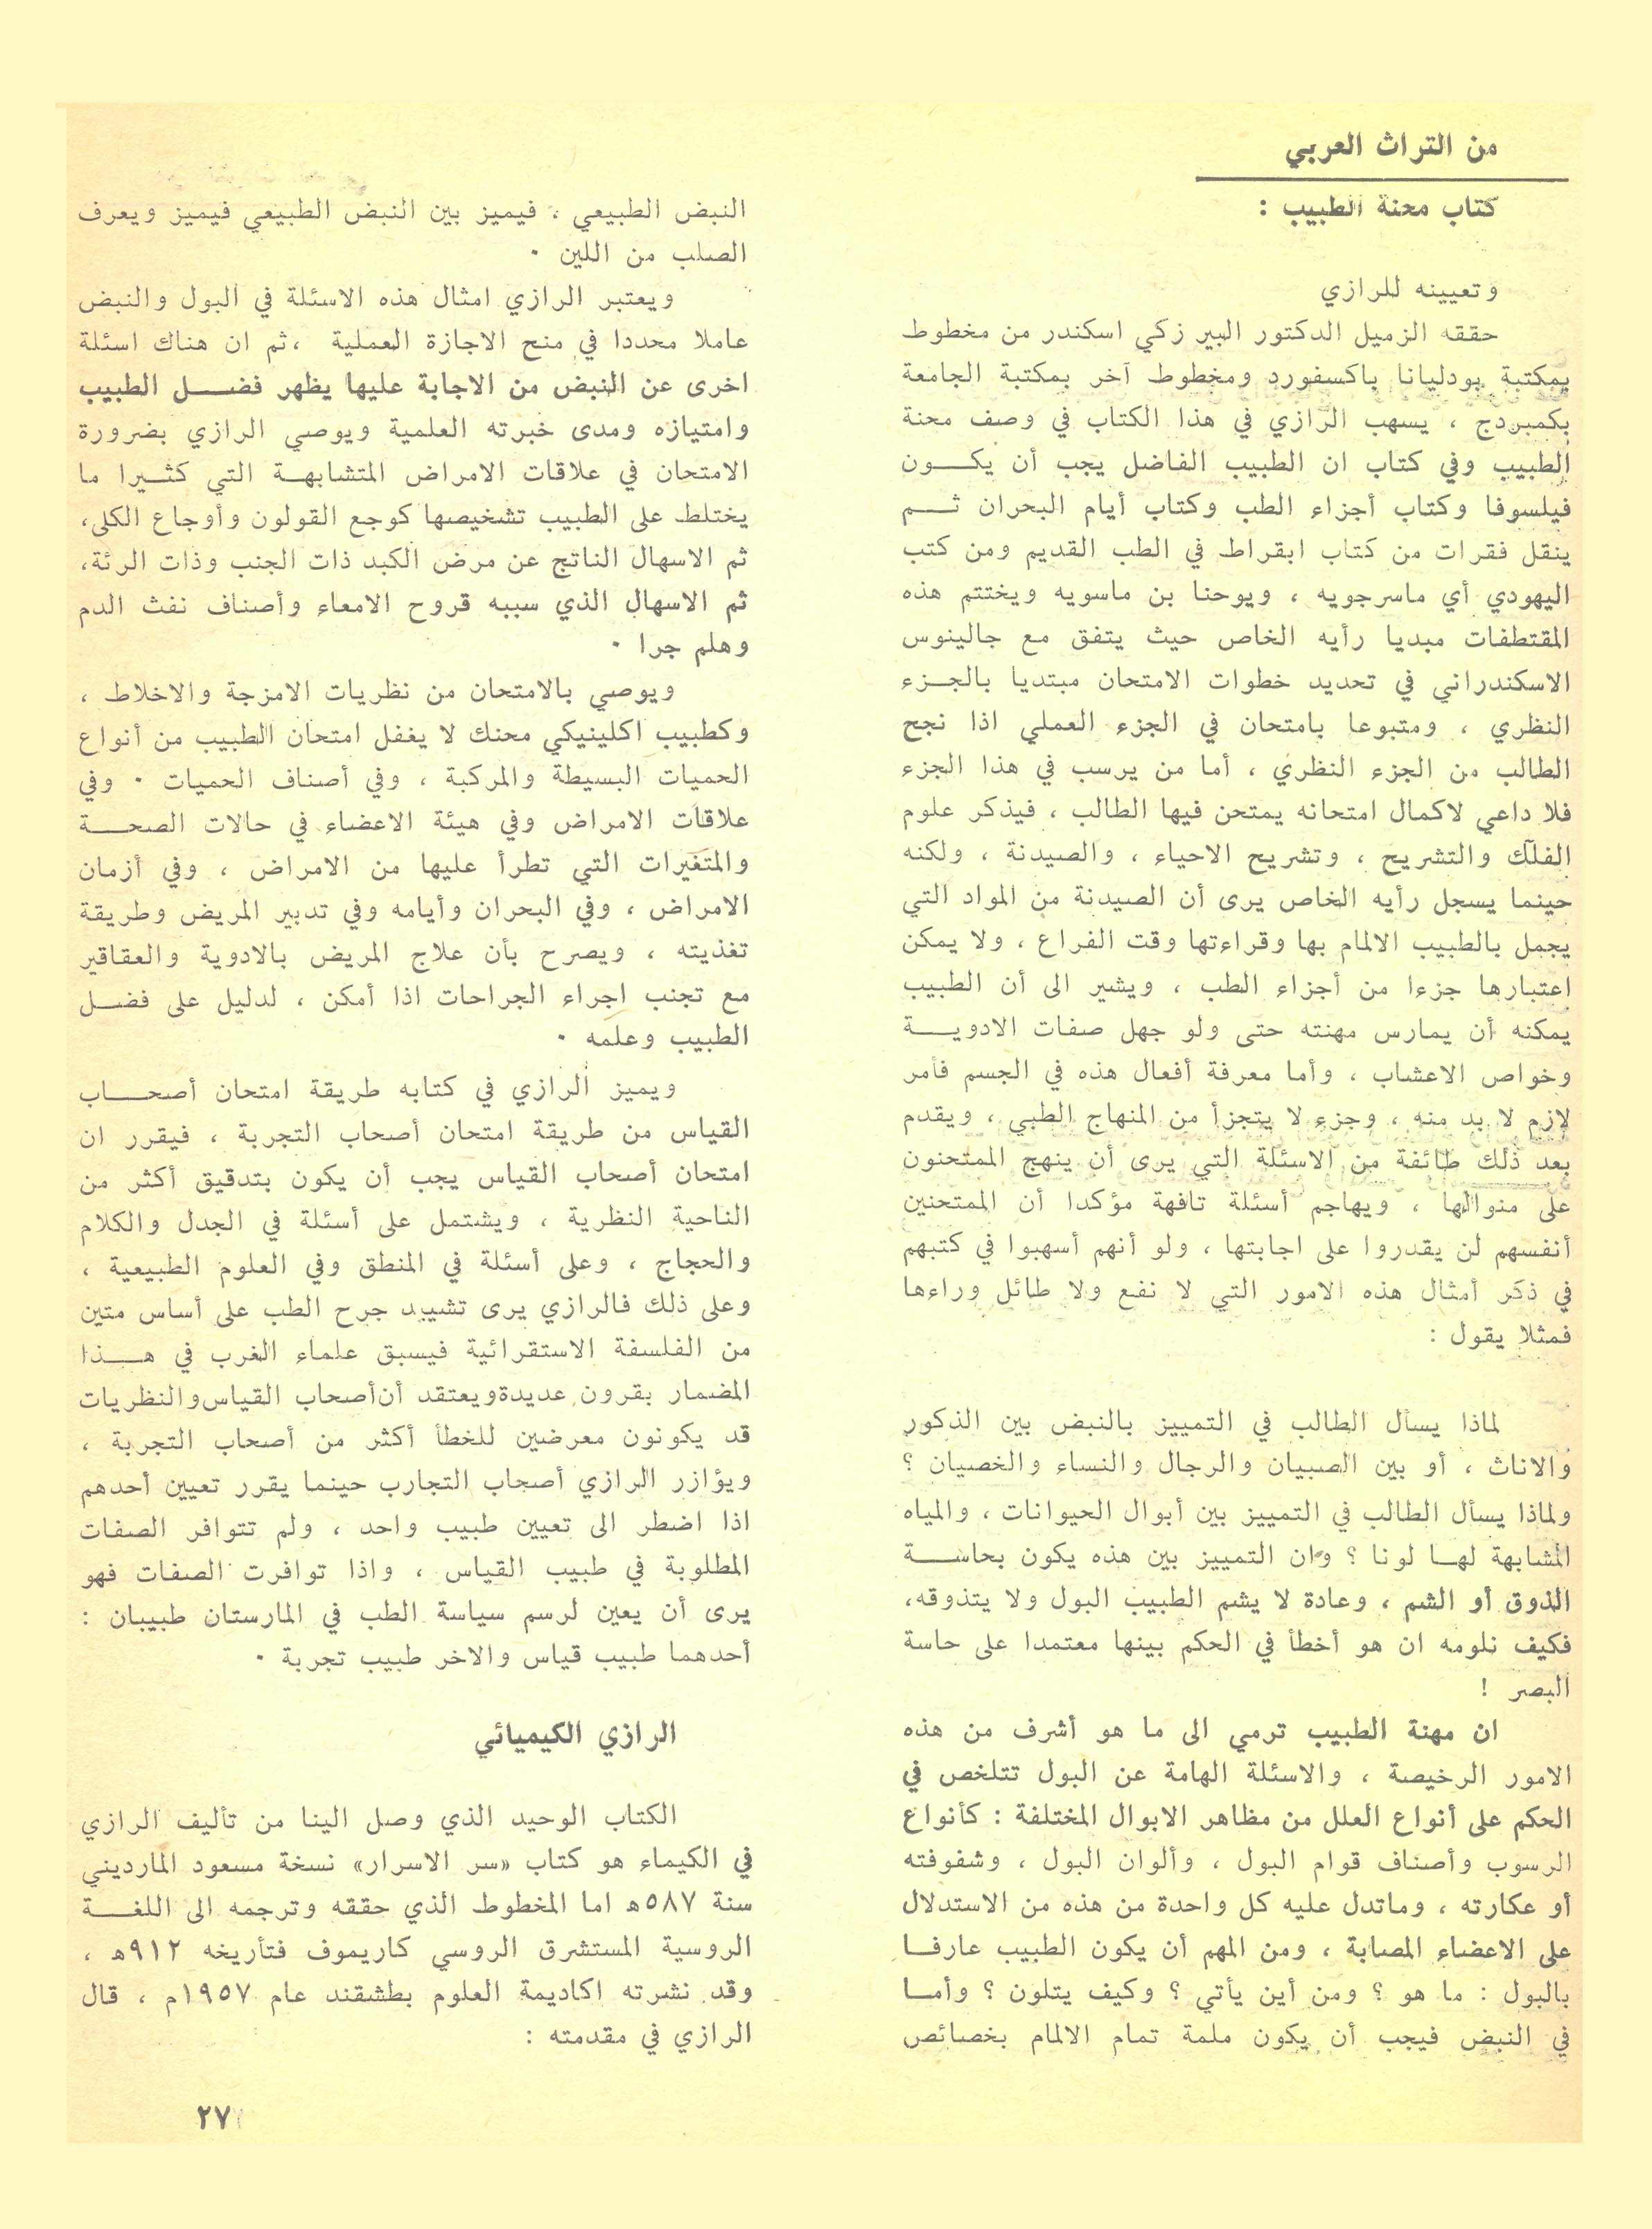 من التراث العربي
كتاب محنة الطبيب :
وتعيينه للرازي
حققه الزميل الدكتور البير زكي اسكندر من مخطوط
بمكتبة بودليانا باكسفورد ومخطوط آخر بمكتبة الجامعة
بكمبردج ، يسهب الرازي في هذا الكتاب في وصف محنة
الطبيب وفي كتاب ان الطبيب الفاضل يجب أن يكـــون
فيلسوفا وكتاب أجزاء الطب وكتاب أيام البحران ثـــم
ينقل فقرات من كتاب ابقراط في الطب القديم ومن كتب
اليهودي أي ماسرجويه ، ويوحنا بن ماسويه ويختتم هذه
المقتطفات مبديا رأيه الخاص حيث يتفق مع جالينوس
الاسكندراني في تحديد خطوات الامتحان مبتديا بالجـزء
النظري ، ومتبوعا بامتحان في الجزء العملي اذا نجح
الطالب من الجزء النظري ، أما من يرسب في هذا الجزء
فلا داعي لاكمال امتحانه يمتحن فيها الطالب ، فيذكر علوم
الفلك والتشريح ، وتشريح الاحياء ، والصيدنة ، ولكنه
حينما يسجل رأيه الخاص يرى أن الصيدنة من المواد التي
يجمل بالطبيب الالمام بها وقراءتها وقت الفراع ، ولا يمكن
اعتبارها جزءا من أجزاء الطب ، ويشير الى أن الطبيب
يمكنه أن يمارس مهنته حتى ولو جهل صفات الادويـــة
وخواص الاعشاب ، وأما معرفة أفعال هذه في الجسم فأمر
لازم لا بد منه ، وجزء لا يتجزأ من المنهاج الطبي ، ويقدم
بعد ذلك طائفة من الاسئلة التي يرى أن ينهج الممتحنون
على منوالها ، ويهاجم أسئلة تافهة مؤكدا أن الممتحنين
أنفسهم لن يقدروا على اجابتها ، ولو أنهم أسهبوا في كتبهم
في ذكر أمثال هذه الامور التي لا نفع ولا طائل وراءها
فمثلا يقول :
لماذا يسأل الطالب في التمييز بالنبض بين الذكور
والاناث ، أو بين الصبيان والرجال والنساء والخصيان ؟
ولماذا يسأل الطالب في التمييز بين أبوال الحيوانات ، والمياه
المشابهة لهـا لونا ؟ وان التمييز بين هذه يكون بحاســـة
الذوق أو الشم ، وعادة لا يشم الطبيب البول ولا يتذوقه،
فكيف نلومه ان هو أخطأ في الحكم بينها معتمدا على حاسة
البصر !
ان مهنة الطبيب ترمي الى ما هو أشرف من هذه
الامور الرخيصة ، والاسئلة الهامة عن البول تتلخص في
الحكم على أنواع العلل من مظاهر الابوال المختلفة : كأنواع
الرسوب وأصناف قوام البول ، وألوان البول ، وشفوفته
أو عكارته ، وماتدل عليه كل واحدة من هذه من الاستدلال
على الاعضاء المصابة ، ومن المهم أن يكون الطبيب عارفـا
بالبول : ما هو ؟ ومن أين يأتي ؟ وكيف يتلون ؟ وأمـا
في النبض فيجب أن يكون ملمة تمام الالمام بخصائص
النبض الطبيعي ، فيميز بين النبض الطبيعي فيميز ويعرف
الصلب من اللين ٠
ويعتبر الرازي امثال هذه الاسئلة في البول والنبض
عاملا محددا في منح الاجازة العملية ،ثم ان هناك اسئلة
اخرى عن النبض من الاجابة عليها يظهر فضـــل الطبيب
وامتيازه ومدى خبرته العلمية ويوصي الرازي بضرورة
الامتحان في علاقات الامراض المتشابهـة التي كثـيرا ما
يختلط على الطبيب تشخيصها كوجع القولون وأوجاع الكلى،
ثم الاسهال الناتج عن مرض الكبد ذات الجنب وذات الرئة،
ثم الاسهال الذي سببه قروح الامعاء وأصناف نفث الدم
وهلم جرا ٠
ويوصي بالامتحان من نظريات الامزجة والاخلاط ،
وكطبيب اكلينيكي محنك لا يغفل امتحان الطبيب من أنواع
الحميات البسيطة والمركبة ، وفي أصناف الحميات ٠ وفي
علاقات الامراض وفي هيئة الاعضاء في حالات الصحـــة
والمتغيرات التي تطرأ عليها من الامراض ، وفي أزمان
الامراض ، وفي البحران وأيامه وفي تدبير المريض وطريقة
تغذيته ، ويصرح بأن علاج المريض بالادوية والعقاقير
مع تجنب اجراء الجراحات اذا أمكن ، لدليل على فضـــل
الطبيب وعلمه ٠
ويميز الرازي في كتابه طريقة امتحان أصحـــاب
القياس من طريقة امتحان أصحاب التجربة ، فيقرر ان
امتحان أصحاب القياس يجب أن يكون بتدقيق أكثر من
الناحية النظرية ، ويشتمل على أسئلة في الجدل والكلام
والحجاج ، وعلى أسئلة في المنطق وفي العلوم الطبيعية ،
وعلى ذلك فالرازي يرى تشييد جرح الطب على أساس متين
من الفلسفة الاستقرائية فيسبق علماء الغرب في هـــذا
المضمار بقرون عديدةويعتقد أن‌أصحاب القياس‌والنظريات
قد يكونون معرضين للخطأ أكثر من أصحاب التجربة ،
ويؤازر الرازي أصحاب التجارب حينما يقرر تعيين أحدهم
اذا اضطر الى تعيين طبيب واحد ، ولم تتوافر الصفات
المطلوبة في طبيب القياس ، واذا توافرت الصفات فهو
يرى أن يعين لرسم سياسة الطب في المارستان طبيبان :
أحدهما طبيب قياس والاخر طبيب تجربة ٠
الرازي الكيميائي
الكتاب الوحيد الذي وصل الينا من تأليف الرازي
في الكيماء هو كتاب «سر الاسرار» نسخة مسعود المارديني
سنة ٥٨٧هـ اما المخطوط الذي حققه وترجمه الى اللغـــة
الروسية المستشرق الروسي كاريموف فتأريخه ٩١٢هـ ،
وقد نشرته اكاديمة العلوم بطشقند عام ١٩٥٧م ، قال
الرازي في مقدمته :
٢٧